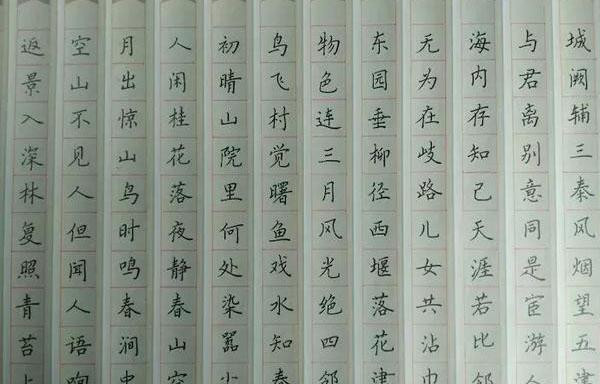 城阙辅三秦风烟望五津
与君离别意同是宦游人
海内存知己天涯若比邻
无为在歧路儿女共沾巾
东园垂柳径西堰落花津
物色连三月风光绝四邻
鸟飞村觉曙鱼戏水知春
初晴山院里何处染嚣尘
人闲桂花落夜静春山空
月出惊山鸟时鸣春涧中
空山不见人但闻人语响
返景入深林复照青苔上